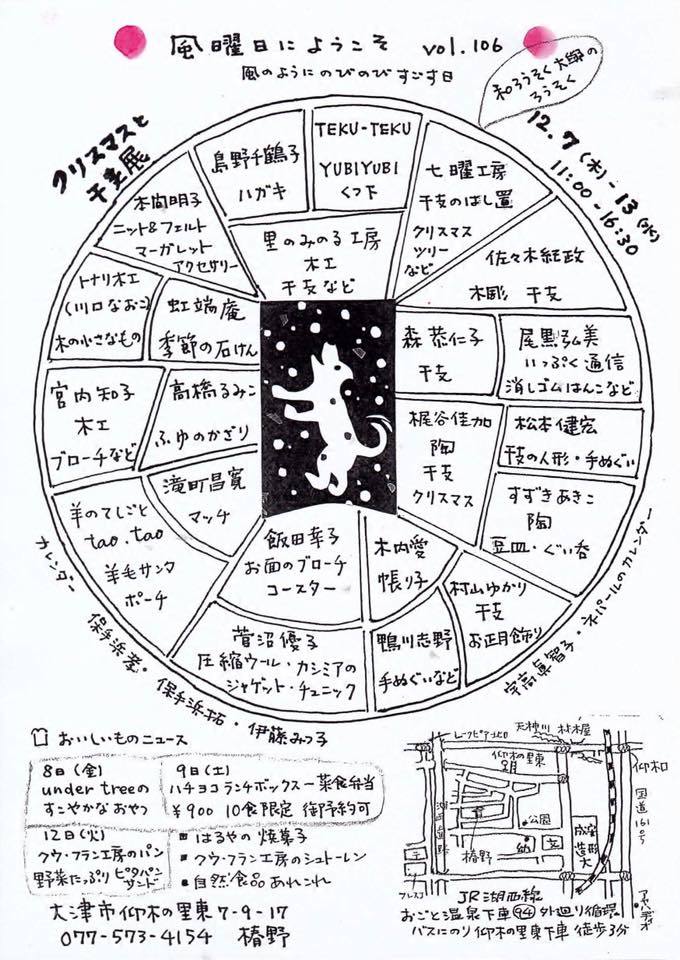 風曜日にようこそ vol.106
風のようにのびのびすごす日
和ろうそく大與の
ろうそく
クリスマスと
干支展
12.7(木)-13(水)
11:00-16:30
島野千鶴子
ハガキ
TEKU-TEKU
YUBIYUBI
くつ下
七曜工房
干支のはし置
クリスマス
ツリー
など
本間明子
ニット&フェルト
マーガレット
アクセサリー
里のみのる工房
木工
干支など
佐々木結政
木彫 干支
トナリ木工
(川口なおこ)
木の小さなもの
虹端庵
季節の石けん
森恭仁子
干支
尾黒弘美
いっぷく通信
消しゴムはんこなど
宮内知子
木工
ブローチなど
高橋るみこ
ふゆのかざり
梶谷佳加
陶
干支
クリスマス
松本健宏
干支の人形・手ぬぐい
滝町昌寛
マッチ
すずきあきこ
陶
豆皿・ぐい呑
羊のてしごと
tao.tao
羊毛サンタ
ポーチ
飯田幸子
お面のブローチ
コースター
木内愛
帳り子
村山ゆかり
干支
お正月飾り
菅沼優子
圧縮ウール・カシミアの
ジャケット・チュニック
鴨川志野
手ぬぐいなど
カレンダー
保手浜孝・保手浜拓・伊藤みつ子
宇高眞智子・ネパールのカレンダー
おいしいものニュース
8日(金)
under treeの
すこやかなおやつ
9日(土)
ハチヨコランチボックス-菜食弁当
¥900 10食限定 御予約可
12日(火)
クウ・フラン工房のパン
野菜たっぷりピタパンサンド
はるやの焼菓子
クウ・フラン工房のシュトーレン
自然食品あれこれ
大津市仰木の里東7-9-17
077-573-4154 椿野
天神川
材木屋
レークピア
仰木の里東
8月
仰木
国道161号
公園
椿野
成安造形大
フレスコ
アヤハディオ
JR湖西線
おごと温泉下車94外廻り循環
バスにのり仰木の里東下車徒歩3分